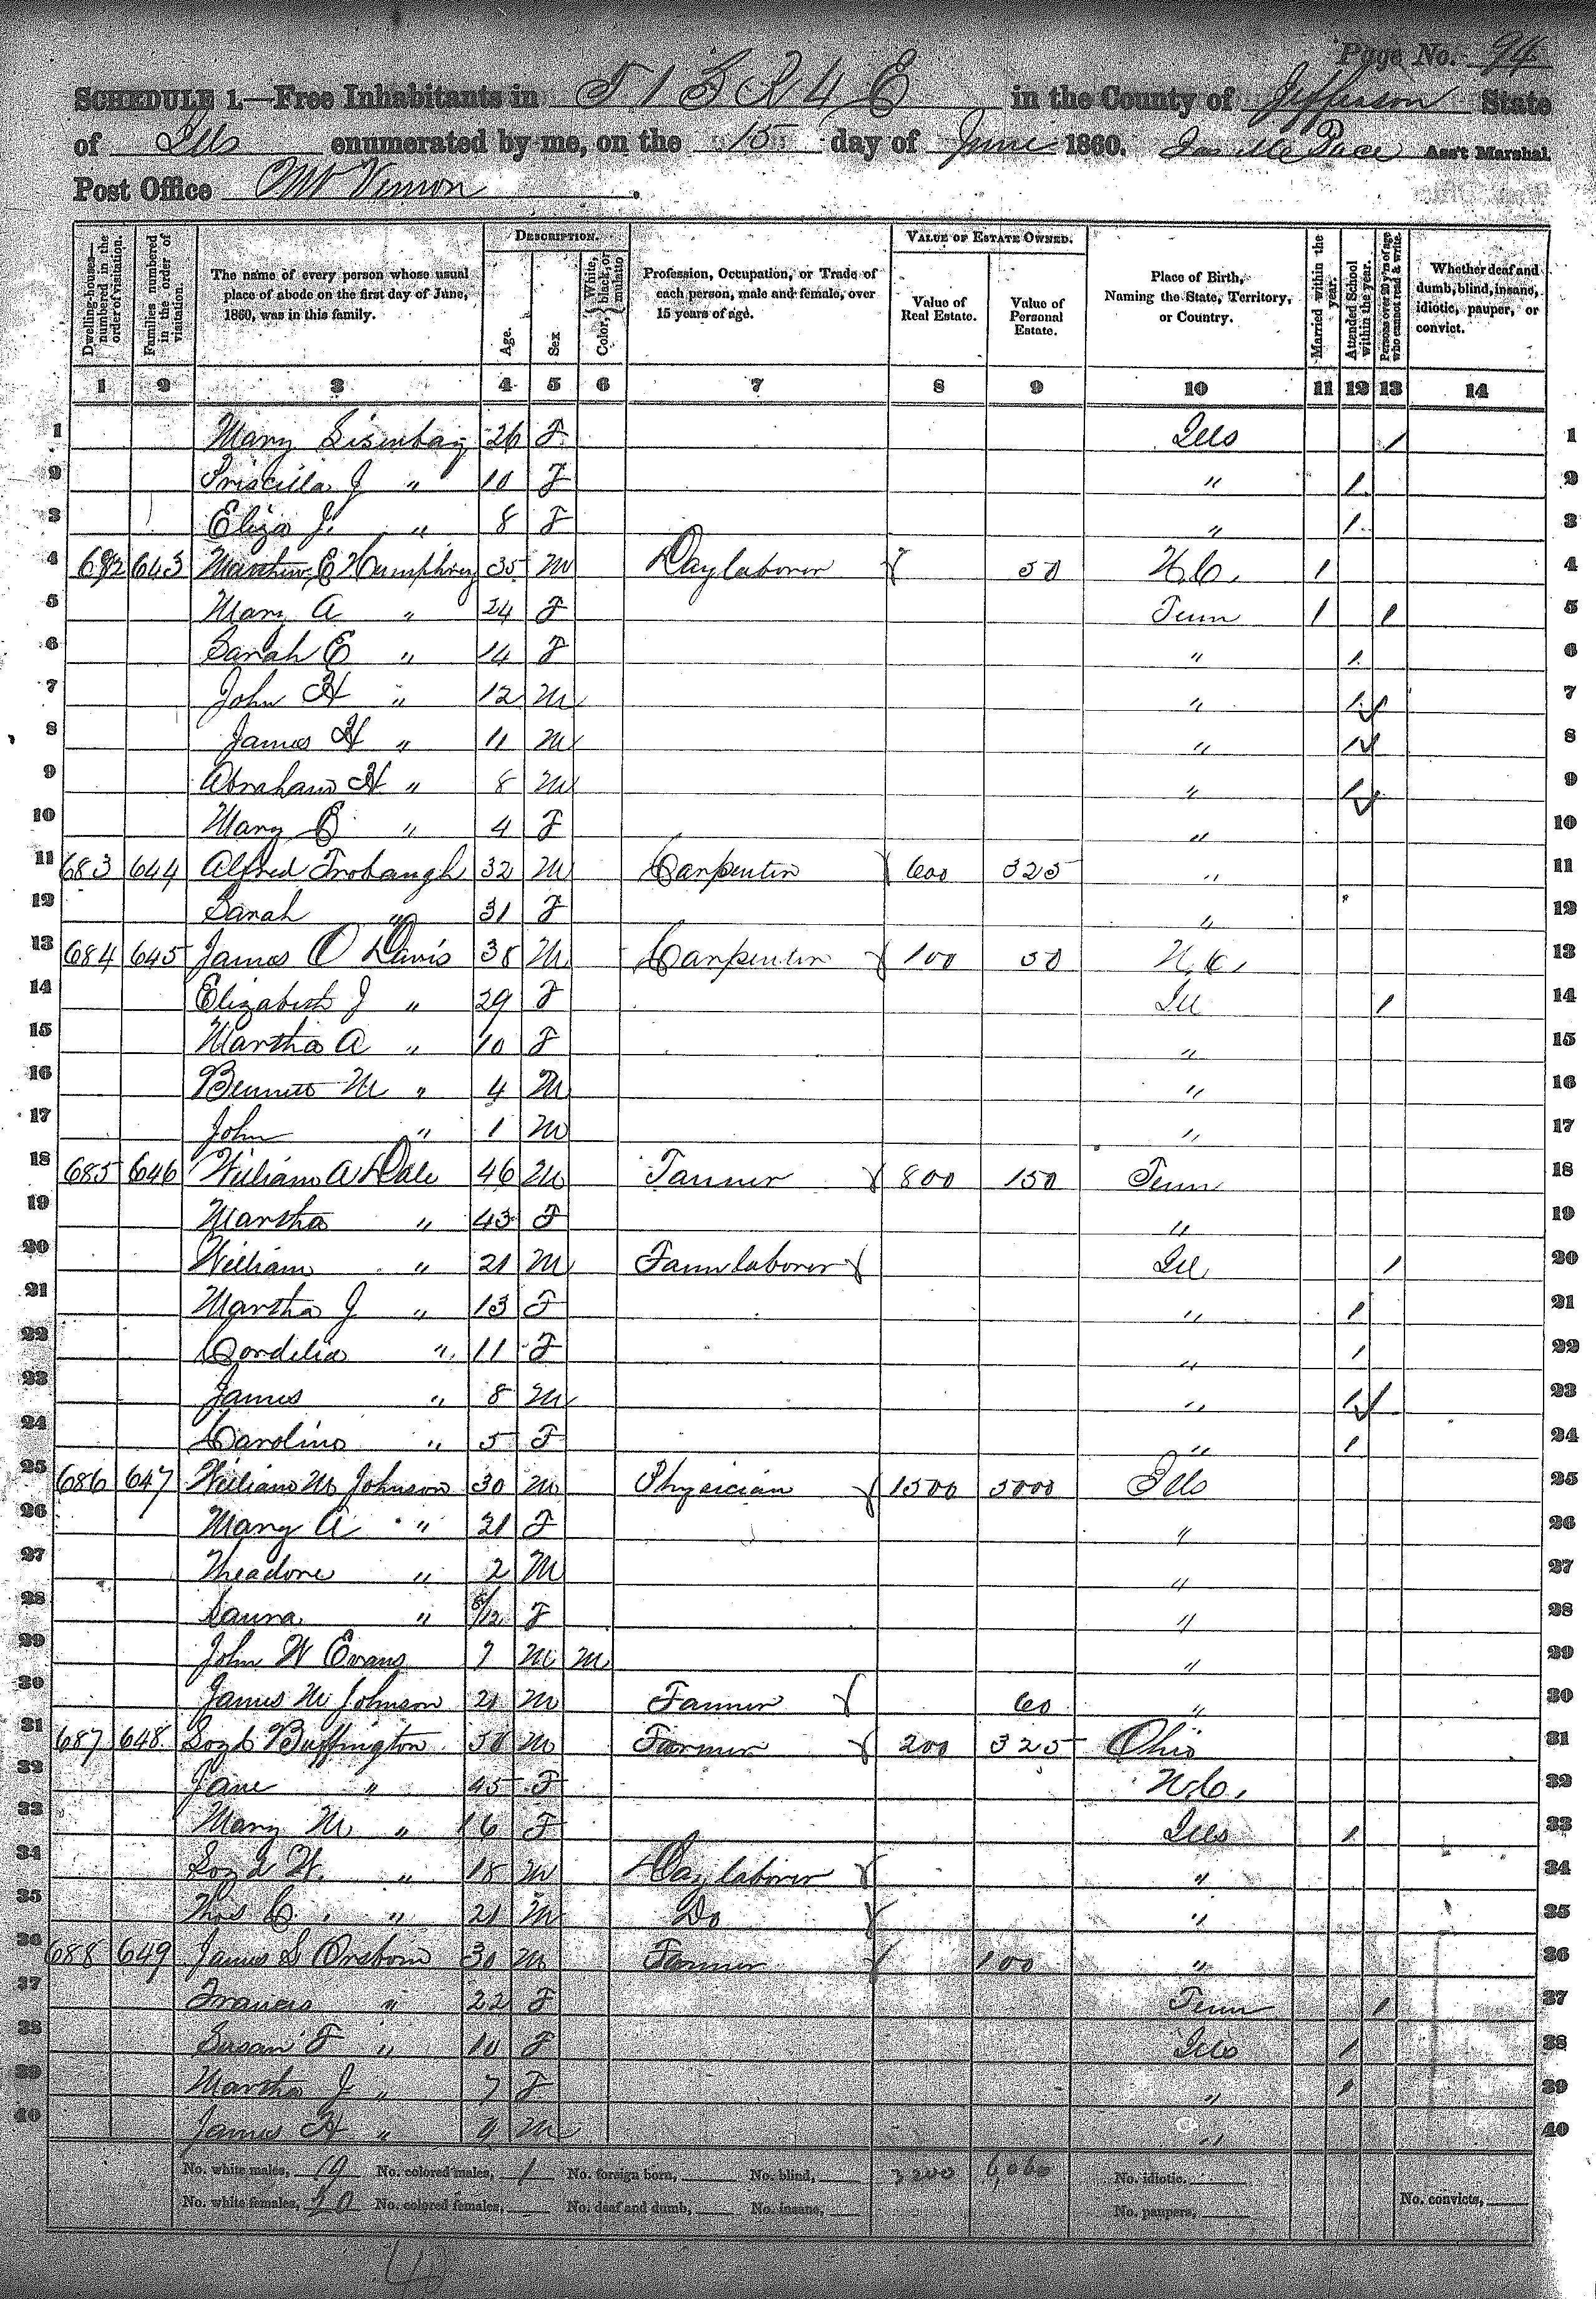 Page No. 94
SCHEDULE 1.—Free Inhabitants in T 1 S R 4 E in the County of Jefferson State
of Ills enumerated by me, on the 15 day of June 1860. Ass't Marshal.
Post Office Mt Vernon.
DESCRIPTION. VALUE OF ESTATE OWNED.
Dwelling-houses—numbered in the order of visitation. Families numbered in the order of visitation. The name of every person whose usual place of abode on the first day of June, 1860, was in this family. Age. Sex Color, { White, black, or mulatto Profession, Occupation, or Trade of each person, male and female, over 15 years of age. Value of Real Estate. Value of Personal Estate. Place of Birth, Naming the State, Territory, or Country. Married within the year. Attended School within the year. Persons over 20 y'rs of age who cannot read & write. Whether deaf and dumb, blind, insane, idiotic, pauper, or convict.
1 2 3 4 5 6 7 8 9 10 11 12 13 14
1 Mary 26 F Ills / 1
2 Priscilla J " 10 F " 1 2
3 Eliza J. " 8 F " 1 3
4 682 643 E Humphrey 35 M Day laborer 50 N.C. 1 4
5 Mary A " 24 F Tenn 1 1 5
6 Sarah E " 14 F " 1 6
7 John H " 12 M " 1 7
8 James H " 11 M " 1 8
9 Abraham H " 8 M " 1 9
10 Mary " 4 F " 10
11 683 644 Alfred Trobaugh 32 M Carpenter 600 325 " 11
12 Sarah " 31 F " 12
13 684 645 James O Davis 38 M Carpenter 100 50 N.C. 13
14 Elizabeth J " 29 F Ill 1 14
15 Martha A " 10 F " 15
16 Bennett M " 4 M " 16
17 John " 1 M " 17
18 685 646 William A Dale 46 M 800 150 Tenn 18
19 Martha " 43 F " 19
20 William " 21 M Farm laborer Ill 1 20
21 Martha J " 13 F " 1 21
22 Cordelia " 11 F " 1 22
23 James " 8 M " 1 23
24 Caroline " 5 F " 1 24
25 686 647 William M Johnson 30 M Physician 1500 5000 Ills 25
26 Mary A " 21 F " 26
27 Theadore " 2 M " 27
28 Laura " /12 F " 28
29 John W Evans 7 M M " 29
30 James M Johnson 21 M Farmer 60 " 30
31 687 648 Buffington 58 M Farmer 200 325 Ohio 31
32 Jane " 45 F N.C. 32
33 Mary M " 16 F Ills 1 33
34 W. " 18 M Day laborer " 34
35 Thos C. " 21 M Do " 35
36 688 649 James S Orsborn 30 M Farmer 100 " 36
37 Frances " 22 F Tenn 1 37
38 Susan F " 10 F Ills 1 38
39 Martha J " 7 F " 1 39
40 James H " M " 40
No. white males, 19 No. colored males, 1 No. foreign born, No. blind, 3200 6,060 No. idiotic.
No. white females, 20 No. colored females, No. deaf and dumb, No. insane, No. paupers, No. convicts,
40